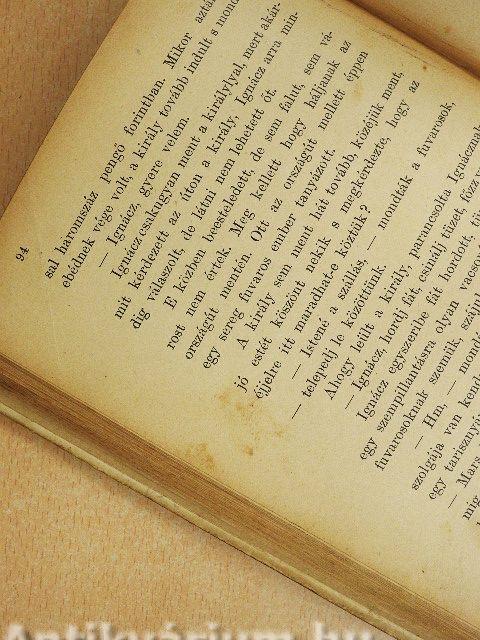 94
sal háromszáz pengő forintban. Mikor aztán
ebédnek vége volt, a király tovább indult s mond
— Ignácz, gyere velem.
Ignácz csakugyan ment a királylyal, mert akár-
mit kérdezett az úton a király, Ignácz arra min-
dig válaszolt, de látni nem lehetett őt.
E közben beesteledett, de sem falut, sem vá-
rost nem értek. Meg kellett hogy háljanak az
országút mentén. Ott az országút mellett éppen
egy sereg fuvaros ember tanyázott.
A király sem ment hát tovább, közéjük ment,
jó estét köszönt nekik s megkérdezte, hogy az
éjjelre itt maradhat-e köztük?
— Istené a szállás, — mondták a fuvarosok,
— telepedj le közöttünk.
Ahogy leült a király, parancsolta Ignácznak
— Ignácz, hordj fát, csinálj tüzet, főzz
Ignácz egyszeribe fát hordott, tü
egy szempillantásra olyan vacsor
fuvarosoknak szemük, száju
— Hm, — mondó
szolgája van kend
egy tarisznyá
— Mars
mig
Antikvárium.hu